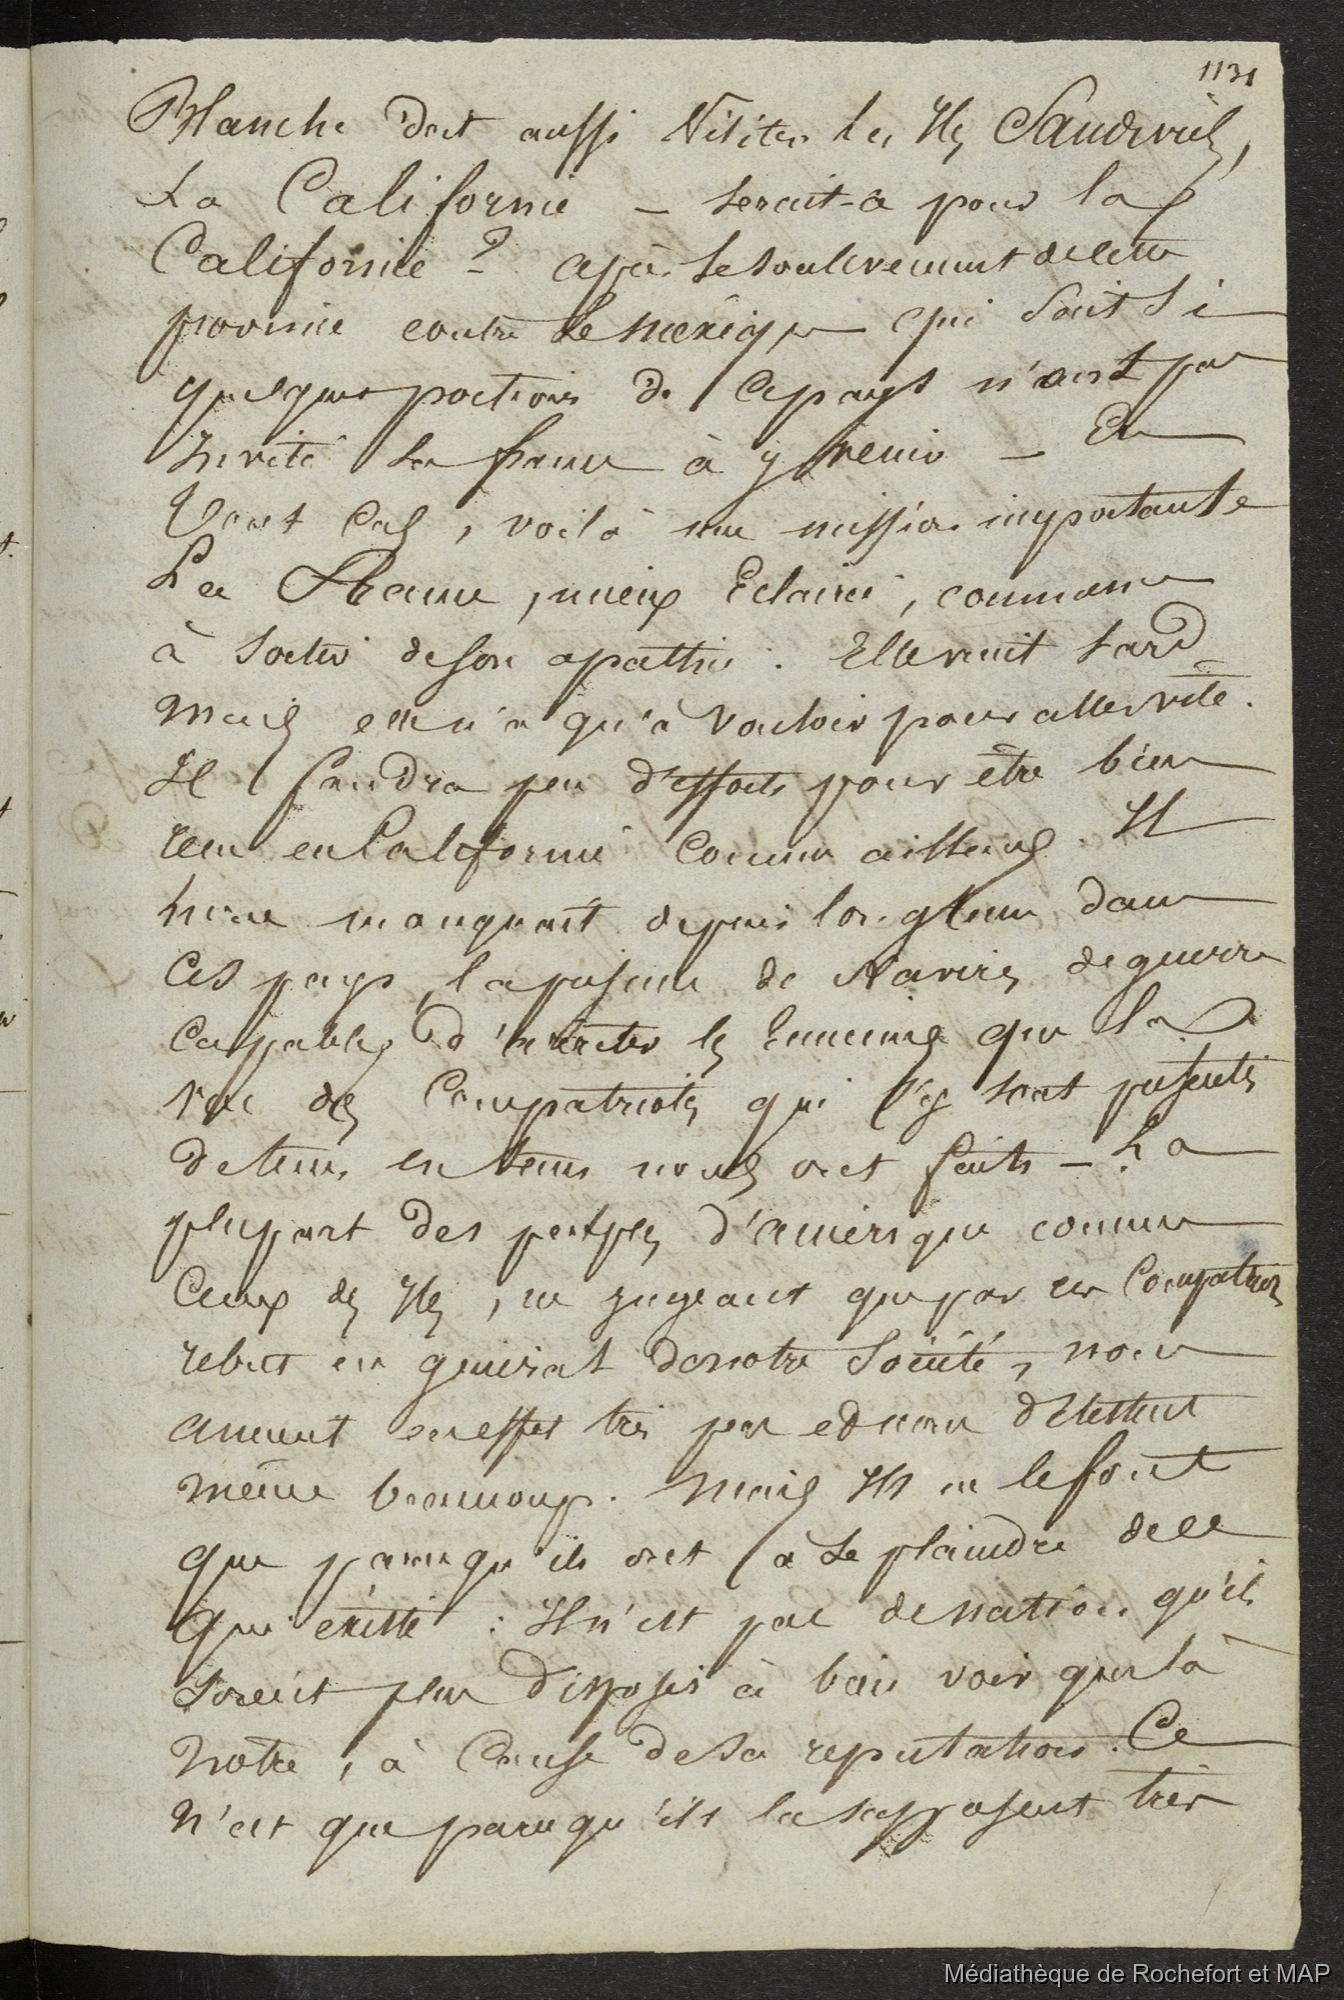 1131
Blanche doit aussi visiter les Iles Sandwich,
La Californie — serait-ce pour la
Californie ? — après le soulevement de cette
province contre le mexique qui sait si
quelques portions de ce pays n'ont pas
invité la france à y venir — En
tout cas, voilà une mission importante
La France, mieux Eclairée, commence
à sortir de son apathie. Elle vient tard
mais elle n'a qu'à vouloir pour aller vite.
Il faudra peu d'efforts pour être bien
venu en Californie comme ailleurs. Il
nous manquait depuis longtems dans
ces pays, la présence de Navires de guerre
capables d'arrêter les Ennemis que la
vue des Compatriotes qui s'y sont présentés
de tems en tems nous ont faits — La
plupart des peuples d'amérique comme
ceux des Iles, ne jugeant que par ces Compatriotes
rebut en general de notre Société, nous
aiment en effet très peu et nous détestent
même beaucoup. mais Ils ne le font
que parcequ'ils ont à se plaindre de ce
qui existe : Il n'est pas de nation qu'ils
soient plus disposés à bien voir que la
notre, à Cause de sa reputation. Ce
n'est que parcequ'ils la supposent très
Médiathèque de Rochefort et MAP